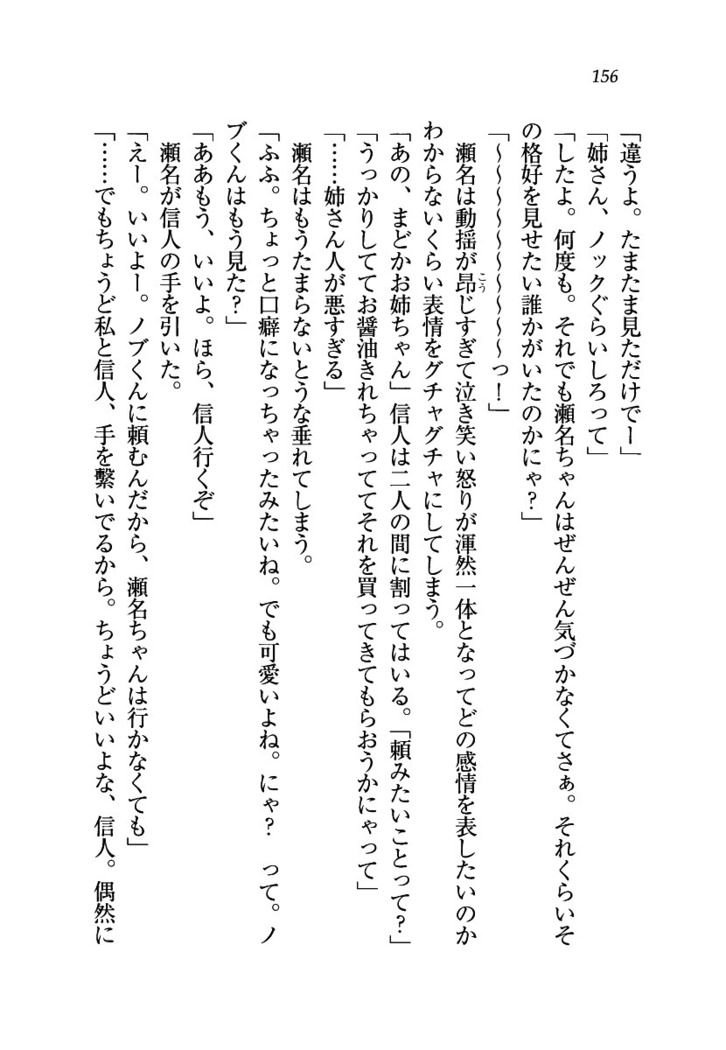 156
「違うよ。たまたま見ただけでー」
「姉さん、ノックぐらいしろって」
「したよ。何度も。それでも瀬名ちゃんはぜんぜん気づかなくてさぁ。それくらいそ
の格好を見せたい誰かがいたのかにゃ?」
「〜〜〜〜〜〜〜〜〜〜っ!」
瀬名は動揺が昂じすぎて泣き笑い怒りが渾然一体となってどの感情を表したいのか
こう
わからないくらい表情をグチャグチャにしてしまう。
「あの、まどかお姉ちゃん」信人は二人の間に割ってはいる。「頼みたいことって?」
「うっかりしててお醤油きれちゃっててそれを買ってきてもらおうかにゃって」
「……姉さん人が悪すぎる」
瀬名はもうたまらないとうな垂れてしまう。
「ふふ。ちょっと口癖になっちゃったみたいね。でも可愛いよね。にゃ? って。ノ
ブくんはもう見た?」
「ああもう、いいよ。ほら、信人行くぞ」
瀬名が信人の手を引いた。
「えー。いいよー。ノブくんに頼むんだから、瀬名ちゃんは行かなくても」
「……でもちょうど私と信人、手を繋いでるから。ちょうどいいよな、信人。偶然に